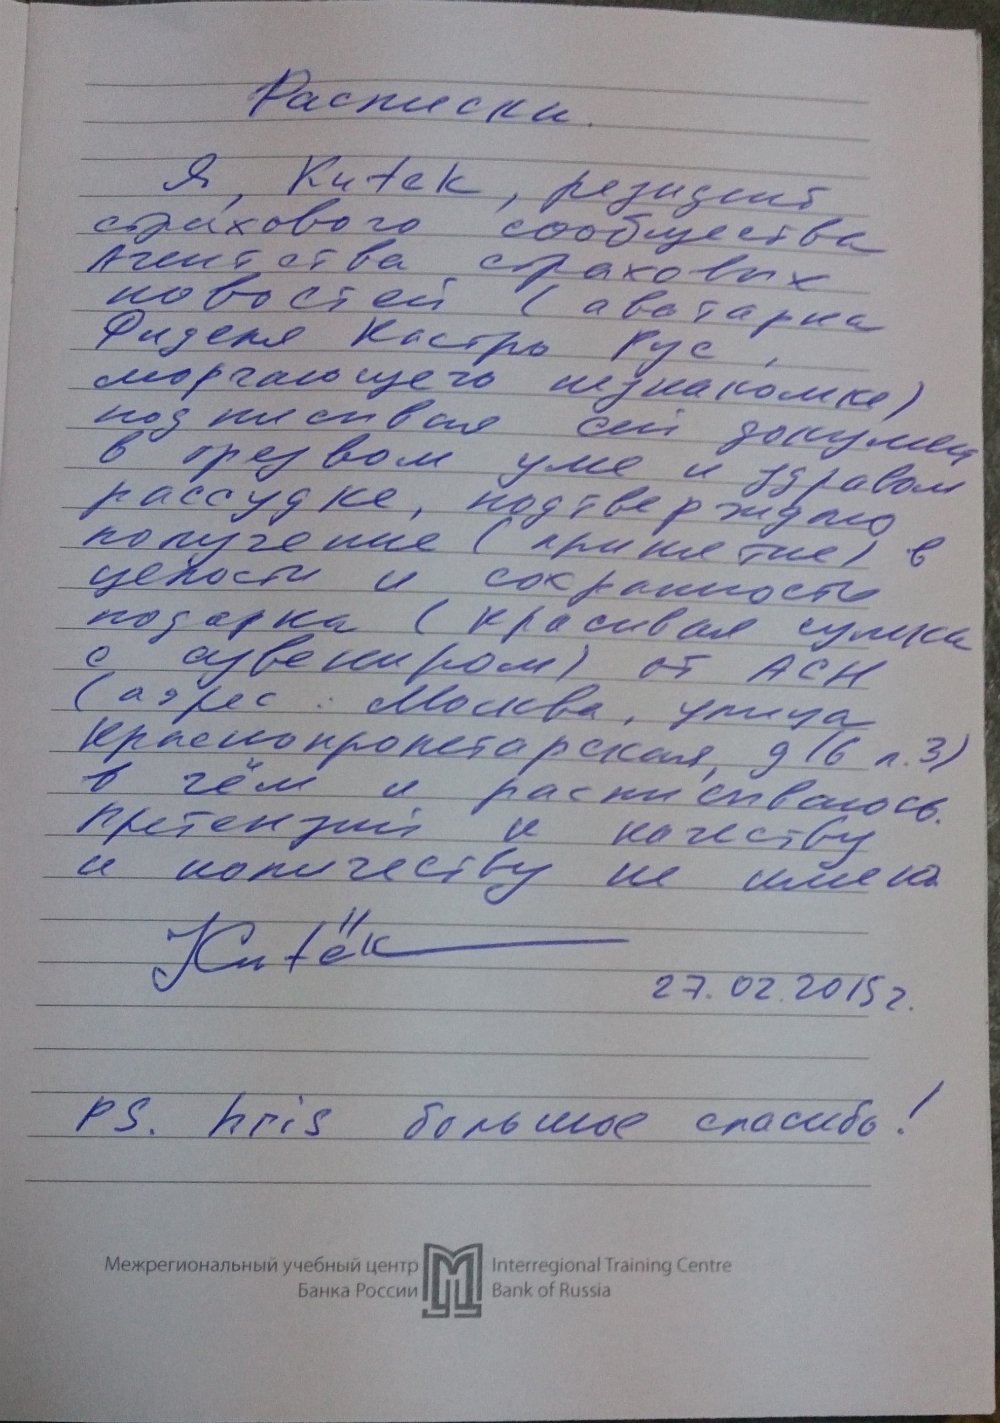 Расписки.
Я, Китек, резидент
страхового сообщества
Агентства страховых
новостей (аватарка
Фиделя Кастро Рус,
моргающего незнакомке)
подписывая сей документ
в трезвом уме и здравом
рассудке, подтверждаю
получение (принятие) в
целости и сохранности
подарка (красивая сумка
с сувениром) от АСН
(адрес: Москва, улица
Краснопролетарская, д 16 п.3)
в чём и расписываюсь.
Претензий к качеству
и количеству не имею
Китёк
27.02.2015г.
PS. hris большое спасибо!
Межрегиональный учебный центр Interregional Training Centre
Банка России Bank of Russia